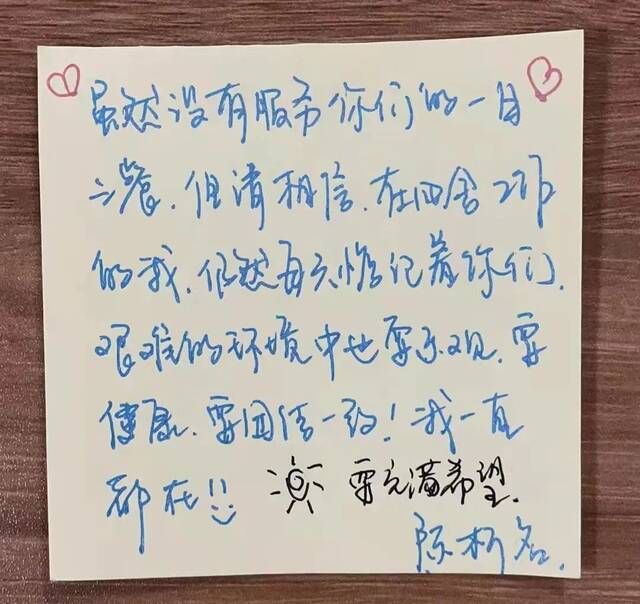 虽然没有服务你们的一日
三餐，但请相信，在四舍工作
的我，仍然每天惦记着你们，
艰难的环境中也要乐观，要
健康，要团结一致！我一直
都在!! 要充满希望，
陈